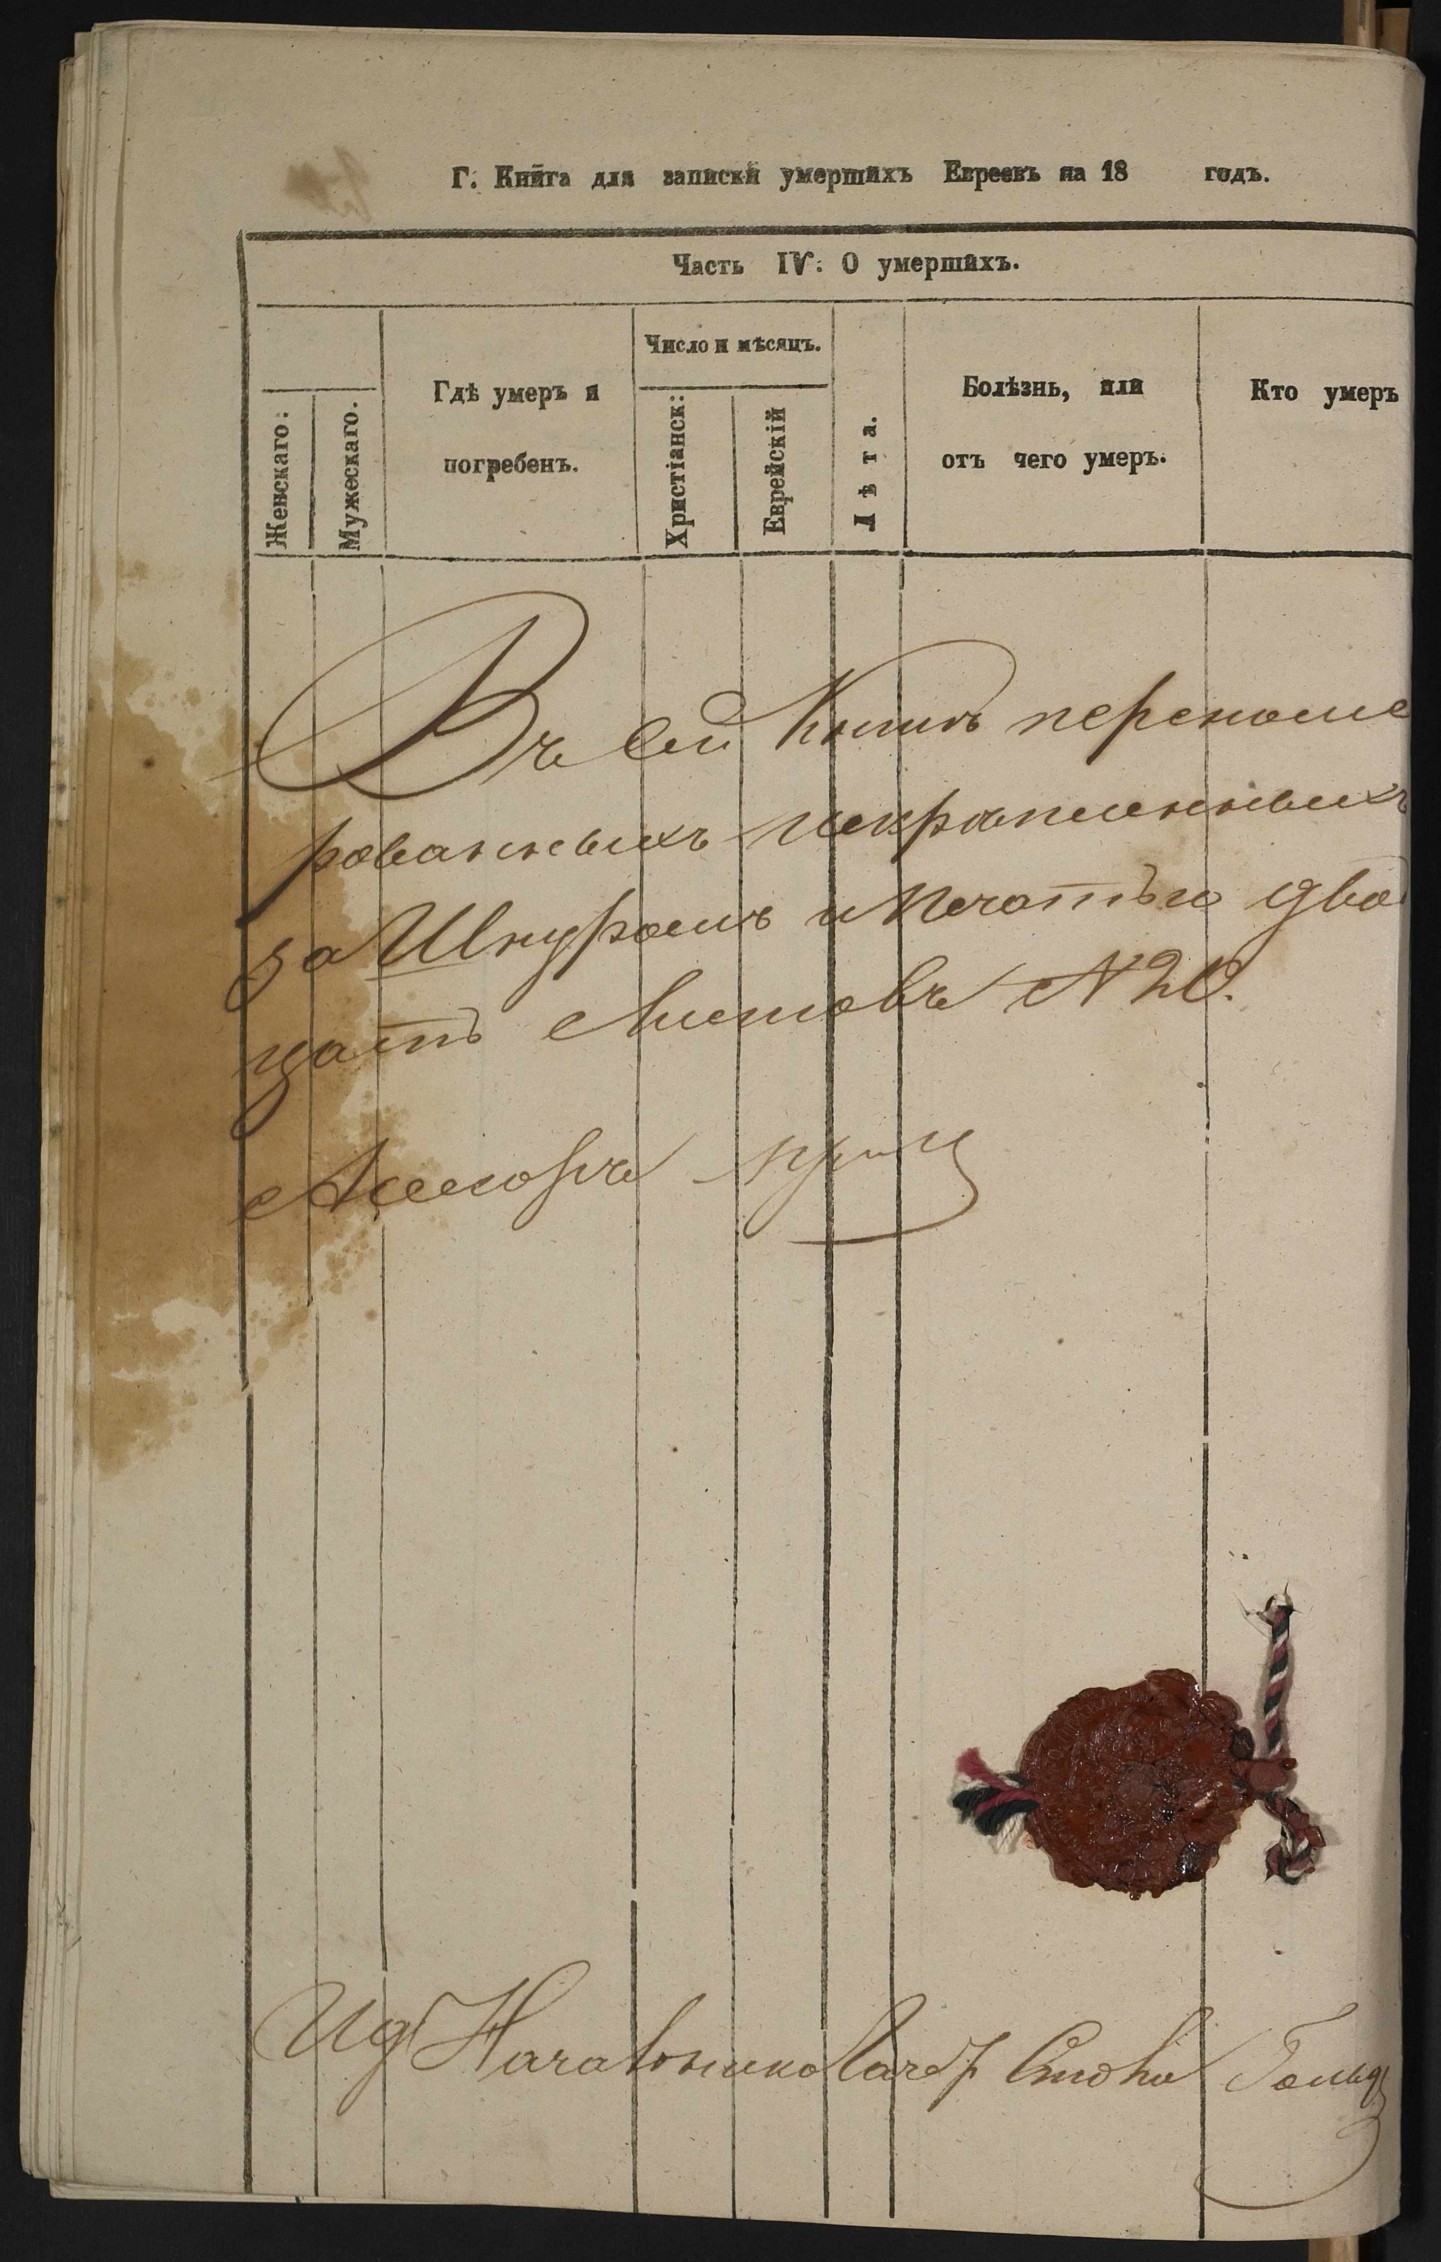 Г. Книга для записки умершихъ Евреевъ на 18 годъ.
Часть IV: О умершихъ.
Женскаго:
Мужескаго.
Гдѣ умеръ и
погребенъ.
Число и мѣсяцъ.
Христіанск:
Еврейскій
Лѣта.
Болѣзнь, или
отъ чего умеръ.
Кто умеръ
Въ сей Книгѣ переноме
рованныхъ
за Шнуромъ и Печатью два
цать Листовъ N 20.
Ид Стола